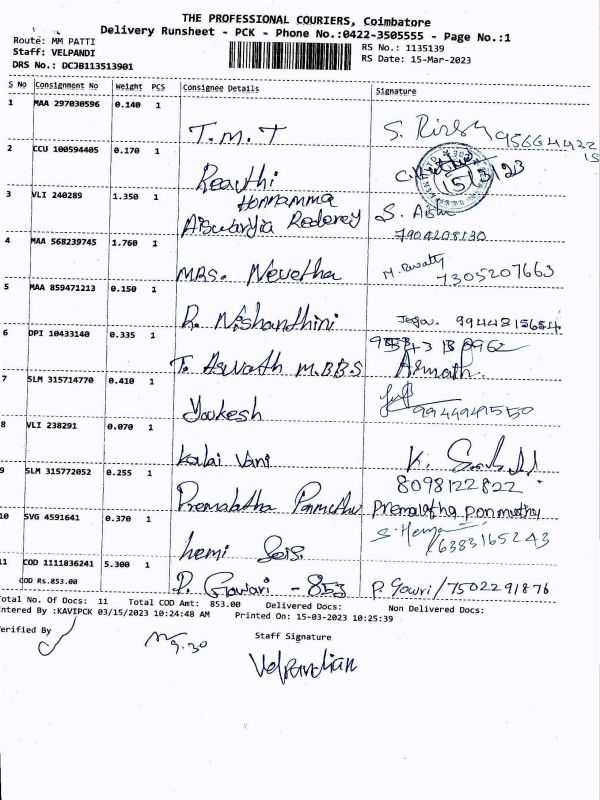 THE PROFESSIONAL COURIERS, Coimbatore
Delivery Runsheet - PCK - Phone No.:0422-3505555 - Page No.:1
Route: MM PATTI
Staff: VELPANDI
DRS No.: DCJB113513901
RS No.: 1135139
RS Date: 15-Mar-2023
S No Consignment No Weight PCS Consignee Details Signature
1 MAA 297030596 0.140 1
T.M.T S.
2 CCU 100594405 0.170 1
Reavthi 15/3/23
3 VLI 240289 1.350 1
Honnamma
Aiswaryia S.
7904208130
4 MAA 568239745 1.760 1
MRS. Nevetha 7305207663
5 MAA 859471213 0.150 1
R. Nishanthini 9944815654
6 DPI 10433140 0.335 1
T. Aswath M.B.B.S
7 SLM 315714770 0.410 1
Yookesh
8 VLI 238291 0.070 1
Kalai Vani K.
8098122822
9 SLM 315772052 0.255 1
Premalatha Ponmuthu Premalatha ponmuthu
10 SVG 4591641 0.370 1
hemi S. Hema
6383165243
11 COD 1111836241 5.300 1
COD Rs.853.00
P. Gowari - 853 P. Gowri/7502291876
Total No. Of Docs: 11 Total COD Amt: 853.00 Delivered Docs: Non Delivered Docs:
Entered By :KAVIPCK 03/15/2023 10:24:48 AM Printed On: 15-03-2023 10:25:39
Verified By Staff Signature
9.30
Velpandian